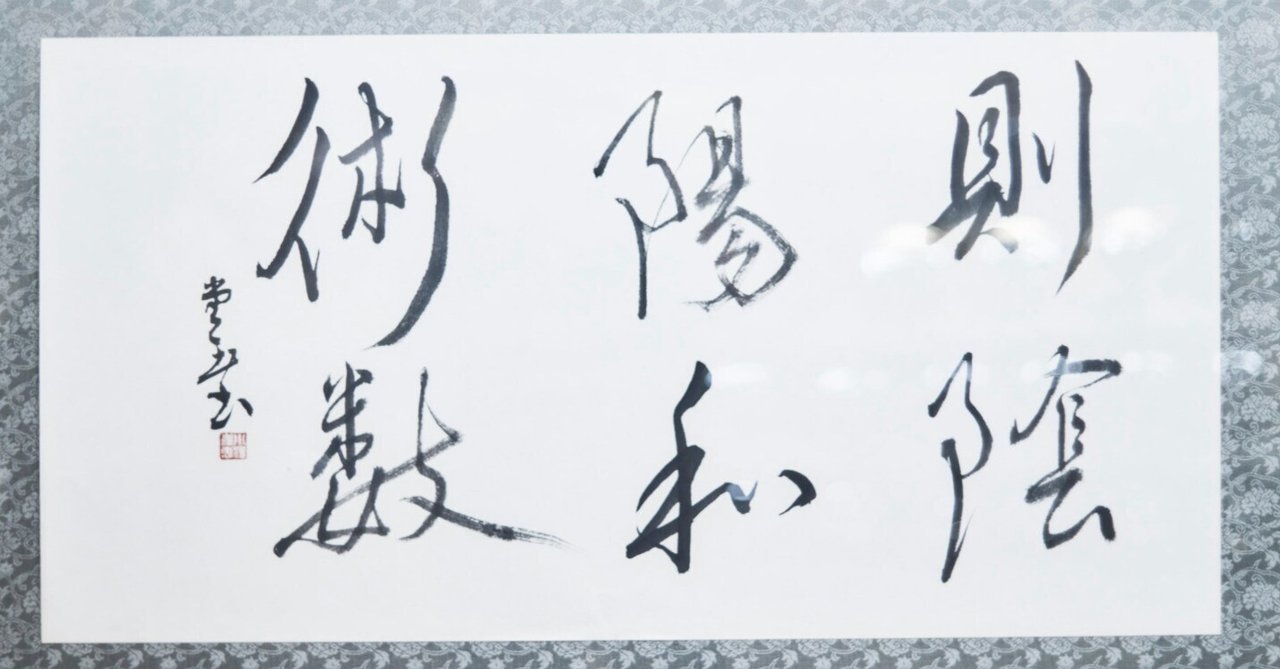 則陰
陽和
術數